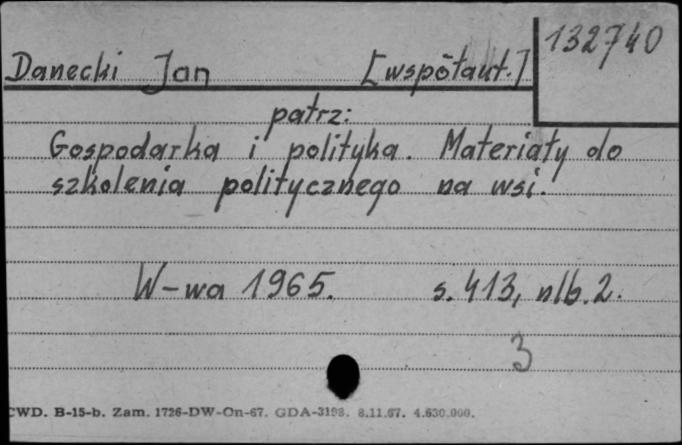 132740
Danecki Jan [współaut.]
patrz:
Gospodarka i polityka. Materiały do
szkolenia politycznego na wsi.
W-wa 1965. s. 413, nlb. 2.
3
CWD. B-15-b. Zam. 1726-DW-On-67. GDA-3198. 8.11.67. 4.630.000.